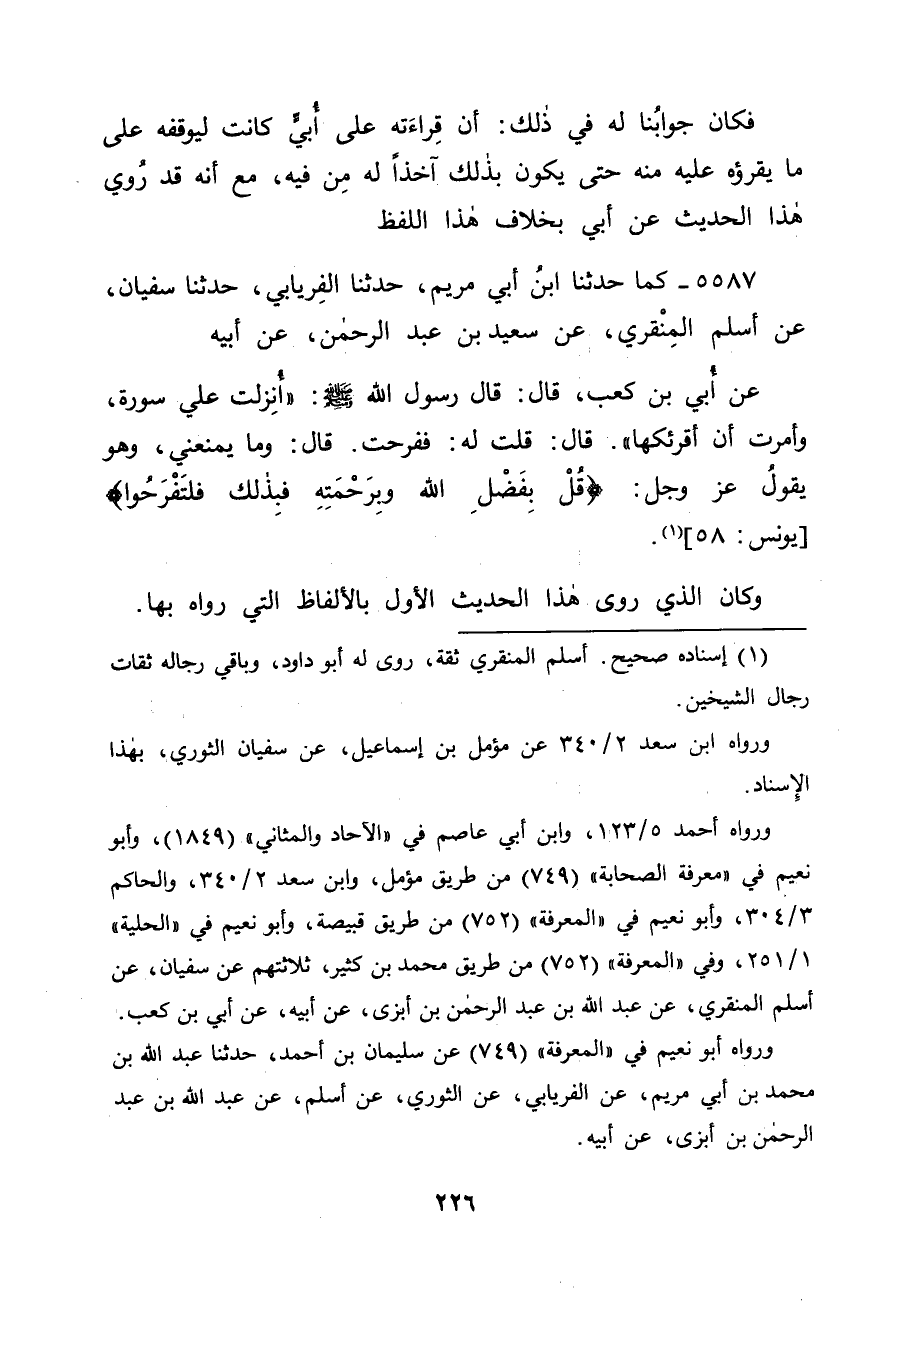 فكان جوابُنا له في ذٰلك: أن قِراءَته على أُبيٍّ كانت ليوقفه على
ما يقرؤه عليه منه حتى يكون بذٰلك آخذاً له مِن فيه، مع أنه قد رُوي
هٰذا الحديث عن أبي بخلاف هٰذا اللفظ
٥٥٨٧ ـ كما حدثنا ابنُ أبي مريم، حدثنا الفِريابي، حدثنا سفيان،
عن أسلم المِنْقري، عن سعيد بن عبد الرحمٰن، عن أبيه
عن أُبي بن كعب، قال: قال رسول الله ﷺ: «أُنزِلت علي سورة،
وأمرت أن أقرئكها». قال: قلت له: ففرحت. قال: وما يمنعني، وهو
يقولُ عز وجل: ﴿قُلْ بِفَضْلِ الله وبِرَحْمَتِهِ فبِذٰلك فلتَفْرَحُوا﴾
[يونس: ٥٨](١).
وكان الذي روى هٰذا الحديث الأول بالألفاظ التي رواه بها.
(١) إسناده صحيح. أسلم المنقري ثقة، روى له أبو داود، وباقي رجاله ثقات
رجال الشيخين.
ورواه ابن سعد ٣٤٠/٢ عن مؤمل بن إسماعيل، عن سفيان الثوري، بهٰذا
الإِسناد.
ورواه أحمد ١٢٣/٥، وابن أبي عاصم في «الآحاد والمثاني» (١٨٤٩)، وأبو
نعيم في «معرفة الصحابة» (٧٤٩) من طريق مؤمل، وابن سعد ٣٤٠/٢، والحاكم
٣٠٤/٣، وأبو نعيم في «المعرفة» (٧٥٢) من طريق قبيصة، وأبو نعيم في «الحلية»
٢٥١/١، وفي «المعرفة» (٧٥٢) من طريق محمد بن كثير، ثلاثتهم عن سفيان، عن
أسلم المنقري، عن عبد الله بن عبد الرحمٰن بن أبزى، عن أبيه، عن أبي بن كعب.
ورواه أبو نعيم في «المعرفة» (٧٤٩) عن سليمان بن أحمد، حدثنا عبد الله بن
محمد بن أبي مريم، عن الفريابي، عن الثوري، عن أسلم، عن عبد الله بن عبد
الرحمٰن بن أبزى، عن أبيه.
٢٢٦